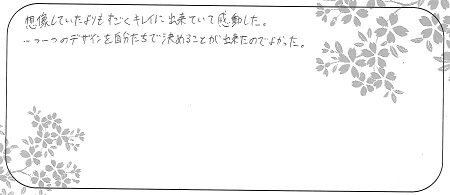 想像していたよりもすごくキレイに出来ていて感動した。
一つ一つのデザインを自分たちで決めることが出来たのでよかった。